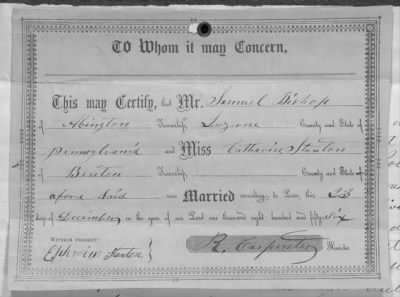 To Whom it may Concern.
This may Certify, that Mr. Samuel Bishop
of Abington Township, Luzerne County and State of
Pennsylvania and Miss Catharine Stanton
of Benton Township, County and State of
afore Said were Married according to Law, this 23
day of December in the year of our Lord one thousand eight hundred and fifty Six
WITNESS PRESENT:
Stanton
R. Carpenter